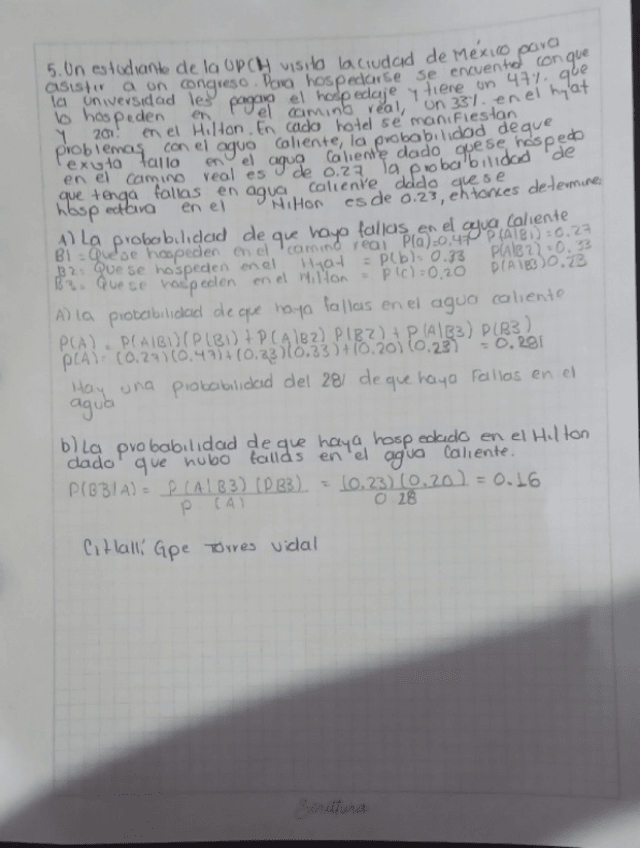 5. Un estudiante de la UPCH visita la ciudad de México para
asistir a un congreso. Para hospedarse se encuentra con que
la universidad les pagara el hospedaje y tiene un 47% que
lo hospeden en el camino real, un 33% en el hyat
y 20% en el Hilton. En cada hotel se manifiestan
problemas con el agua caliente, la probabilidad de que
exista falla en el agua caliente dado que se hospedo
en el camino real es de 0.27 la probabilidad de
que tenga fallas en agua caliente dado que se
hospedara en el Hilton es de 0.23, entonces determine
A) La probabilidad de que haya fallas en el agua caliente
B1 = Que se hospeden en el camino real P(a)=0.47 P(A|B1)=0.27
B2 = Que se hospeden en el Hyat = P(b)= 0.33 P(A|B2)=0.33
B3 = Que se hospeden en el Hilton = P(c)=0.20 P(A|B3)0.23
A) La probabilidad de que haya fallas en el agua caliente
P(A) = P(A|B1)(P(B1)+P(A|B2) P(B2)+P(A|B3) P(B3)
P(A)= (0.27)(0.47)+(0.33)(0.33)+(0.20)(0.23) = 0.281
Hay una probabilidad del 28% de que haya Fallas en el
agua
b) La probabilidad de que haya hospedado en el Hilton
dado que hubo fallas en el agua caliente.
P(B3|A) = P(A|B3)(PB3) / P(A) = (0.23)(0.20) / 0.28 = 0.16
Citlalli Gpe Torres Vidal